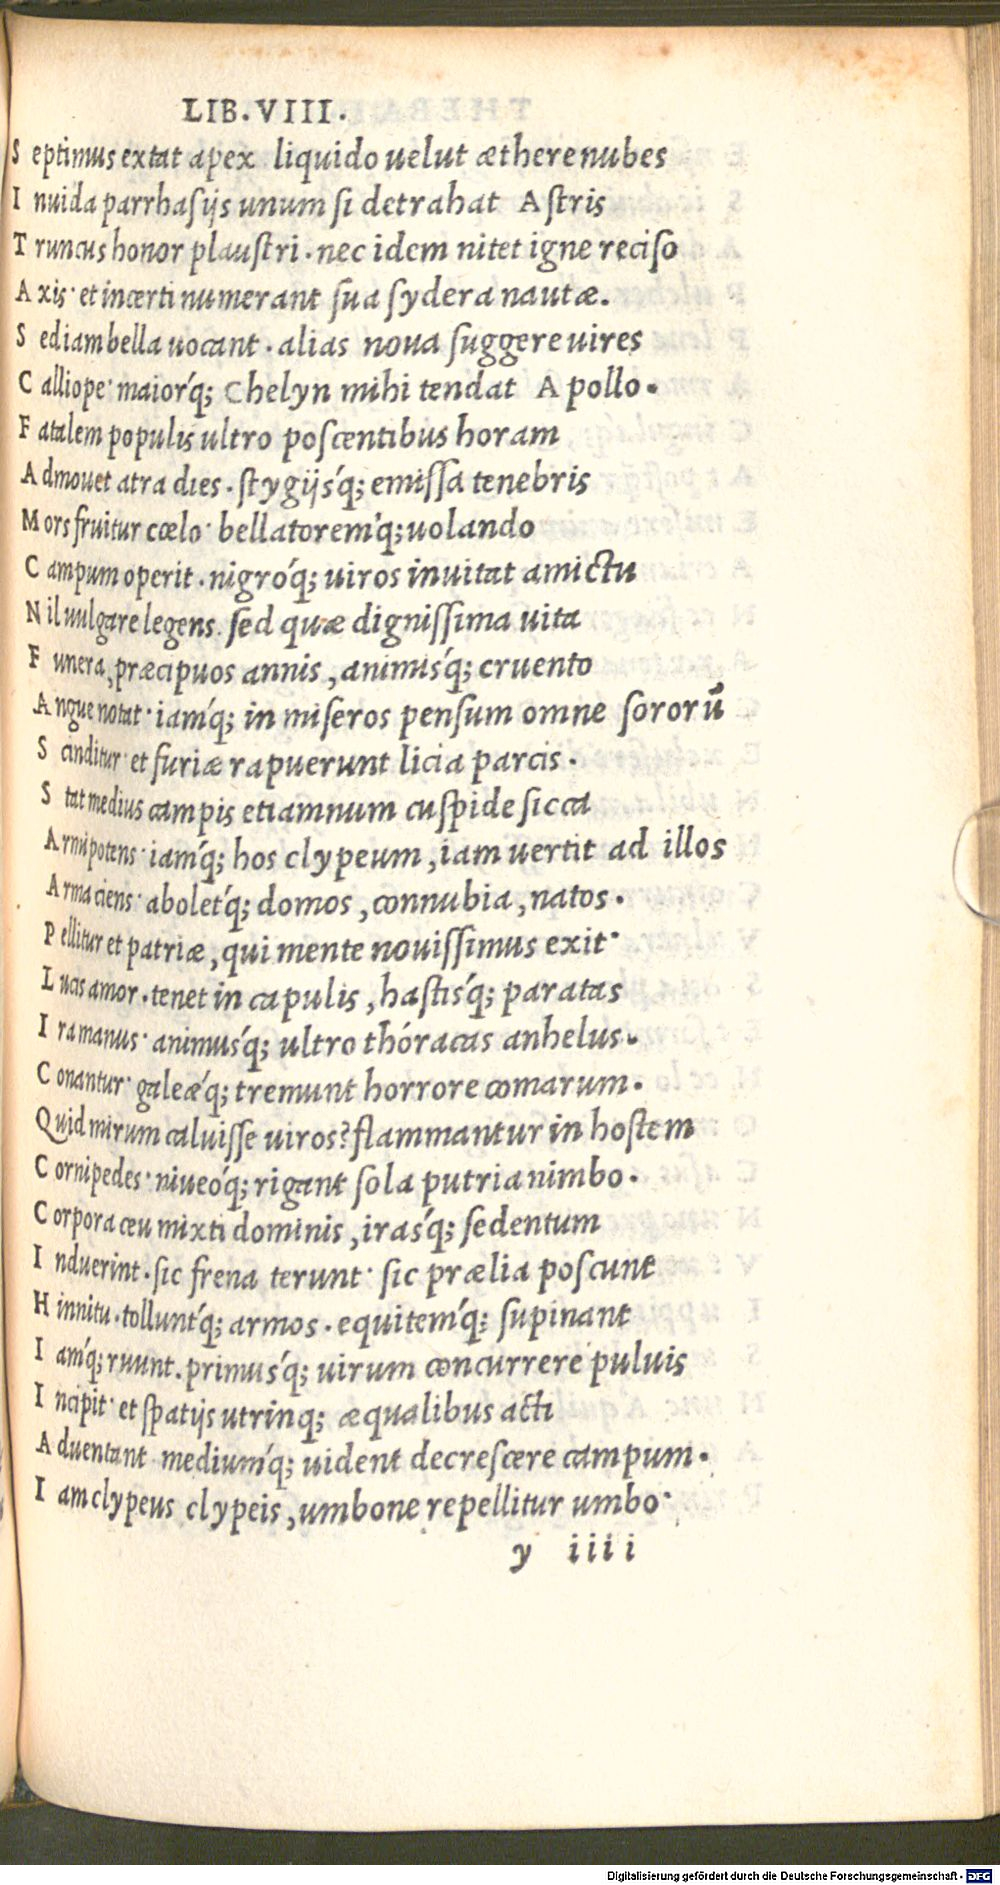 LIB.VIII.
S eptimus extat apex liquido uelut æthere nubes
I nuida parrhasijs unum si detrahat Astris
T runcus honor plaustri. nec idem nitet igne reciso
A xis· et incerti numerant sua sydera nautæ.
S ed iam bella uocant. alias noua suggere uires
C alliope· maiorq́; Chelyn mihi tendat Apollo.
F atalem populis ultro poscentibus horam
A dmouet atra dies. stygijsq́; emissa tenebris
M ors fruitur cœlo· bellatoremq́; uolando
C ampum operit. nigroq́; uiros inuitat amictu
N il uulgare legens. sed quæ dignissima uita
F unera, præcipuos annis, animisq́; cruento
A ngue notat· iamq́; in miseros pensum omne sororū
S cinditur· et furiæ rapuerunt licia parcis.
S tat medius campis etiamnum cuspide sicca
A rmipotens· iamq́; hos clypeum, iam uertit ad illos
A rma ciens· aboletq́; domos, connubia, natos.
P ellitur et patriæ, qui mente nouissimus exit·
L ucis amor. tenet in capulis, hastisq́; paratas
I ra manus· animusq́; ultro thóracas anhelus.
C onantur· galeæq́; tremunt horrore comarum.
Quid mirum caluisse uiros? flammantur in hostem
C ornipedes· niueoq́; rigant sola putria nimbo.
C orpora ceu mixti dominis, irasq́; sedentum
I nduerint. sic frena terunt· sic prælia poscunt
H innitu. tolluntq́; armos. equitemq́; supinant
I amq́; ruunt. primusq́; uirum concurrere puluis
I ncipit· et spatijs utrinq; æqualibus acti
A duentant mediumq́; uident decrescere campum.
I am clypeus clypeis, umbone repellitur umbo·
y iiii
Digitalisierung gefördert durch die Deutsche Forschungsgemeinschaft - DFG